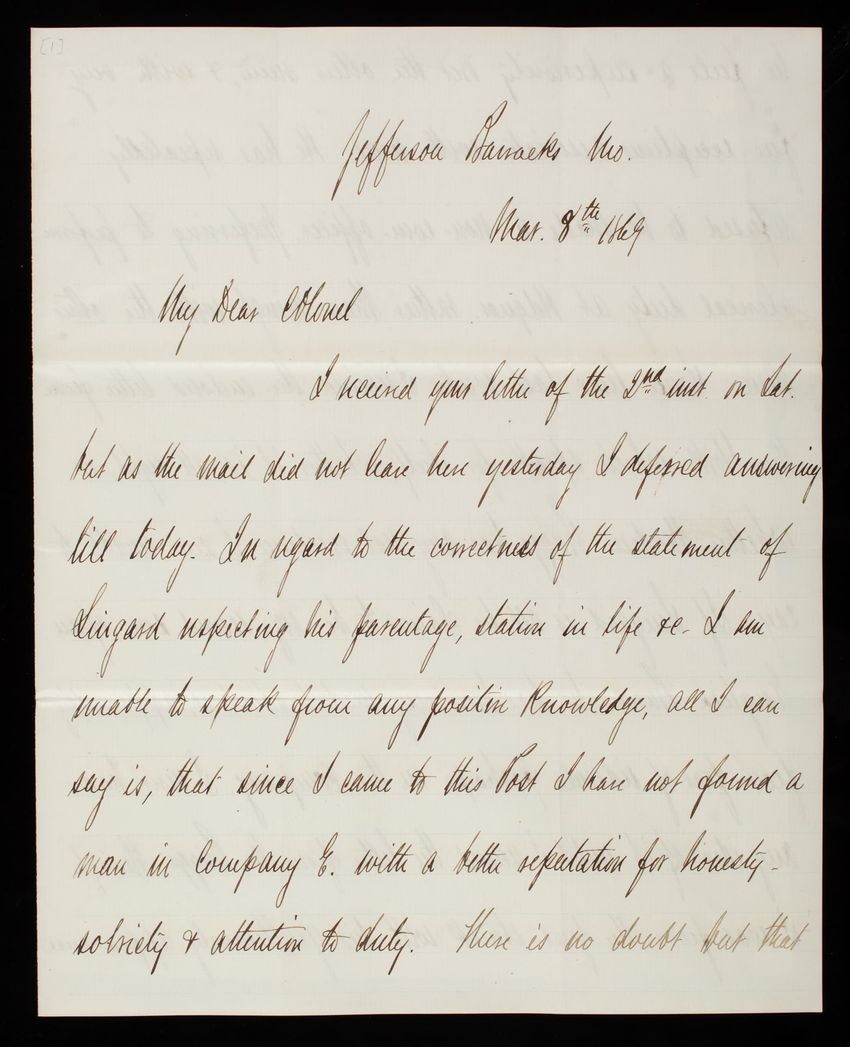 [1]
Jefferson Barracks Mo.
Mar. 8th 1869
My Dear Colonel
I received your letter of the 2nd inst. on Sat.
but as the mail did not leave here yesterday I deferred answering
till today. In regard to the correctness of the statement of
Lingard respecting his parentage, station in life &c - I am
unable to speak from any positive Knowledge, all I can
say is, that since I came to this Post I have not found a
man in Company E. with a better reputation for honesty -
sobriety & attention to duty. There is no doubt but that